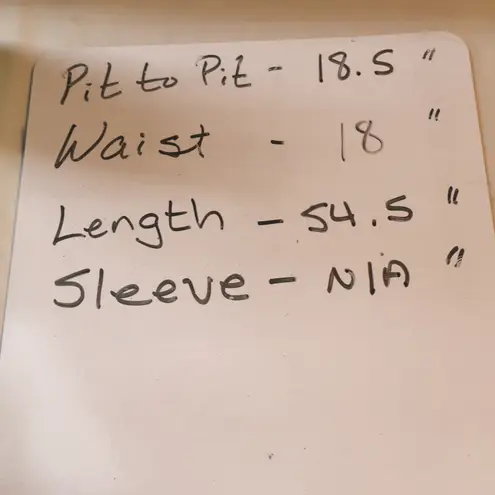 Pit to Pit - 18.5 "
Waist - 18 "
Length - 54.5 "
Sleeve - N/A "